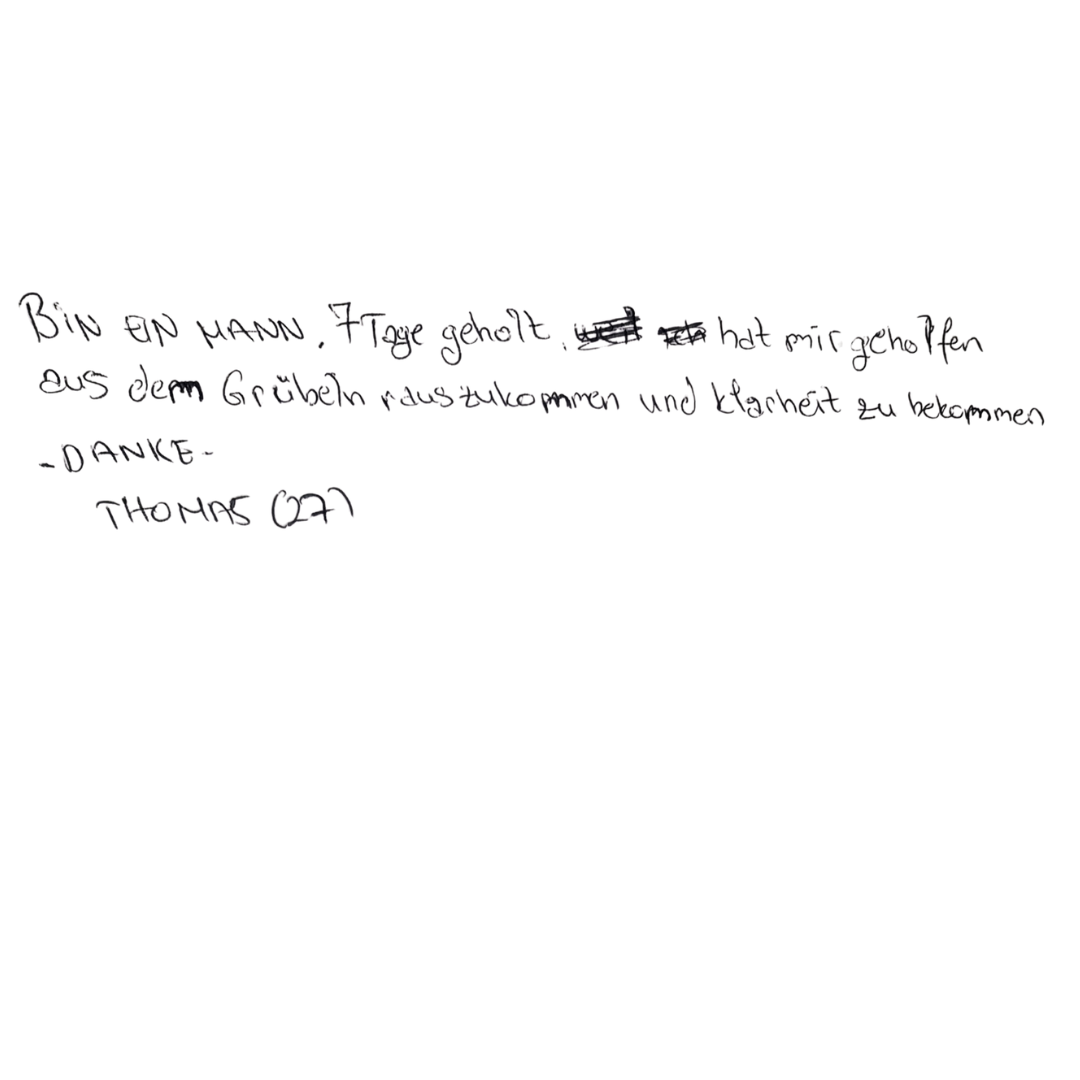 BIN EIN MANN, 7 Tage geholt, hat mir geholfen
aus dem Grübeln rauszukommen und klarheit zu bekommen
- DANKE -
THOMAS (27)